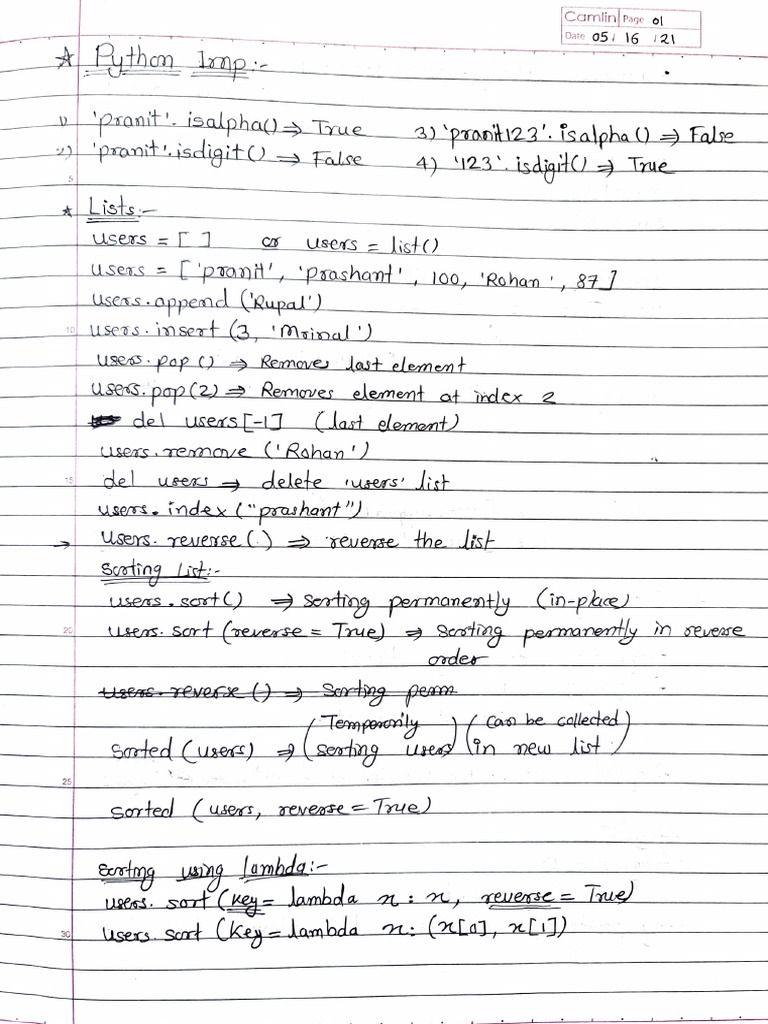 Camlin Page 01
Date 05 / 16 / 21
* Python Imp:-
1) 'pranit'.isalpha() ⇒ True 3) 'pranit123'.isalpha() ⇒ False
2) 'pranit'.isdigit() ⇒ False 4) '123'.isdigit() ⇒ True
5
* Lists:-
users = [ ] or users = list()
users = ['pranit', 'prashant', 100, 'Rohan', 87]
users.append('Rupal')
10 users.insert(3, 'Mrinal')
users.pop() ⇒ Removes last element
users.pop(2) ⇒ Removes element at index 2
del users[-1] (last element)
users.remove('Rohan')
15 del users ⇒ delete 'users' list
users.index("prashant")
→ users.reverse(.) ⇒ reverse the list
Sorting List:-
users.sort() ⇒ Sorting permanently (in-place)
20 users.sort(reverse = True) ⇒ Sorting permanently in reverse
order
users.reverse() ⇒ Sorting perm
(Temporarily (Can be collected
sorted(users) ⇒ sorting users) in new list)
25
sorted(users, reverse = True)
Sorting using lambda:-
users.sort(key = lambda x : x, reverse = True)
30 users.sort(key = lambda x: (x[0], x[1])